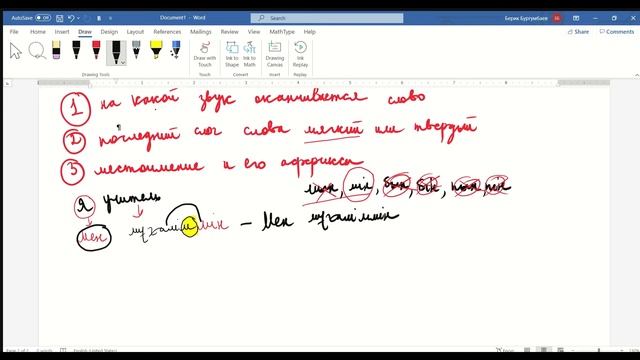 AutoSave Off Document1 - Word Search Берик Бургумбаев
File Home Insert Draw Design Layout References Mailings Review View Help Share Comments
Draw with Touch Ink to Shape Ink to Math Drawing Canvas Ink Replay
Drawing Tools Convert Insert Replay
1 на какой звук оканчивается слово
2 последний слог слова мягкий или твердый
3 местоимение и его аффикса
мын, мін, бын, бін, пын, пін
Я учитель
мен мұғаліммін - Мен мұғаліммін
English (United States) Focus